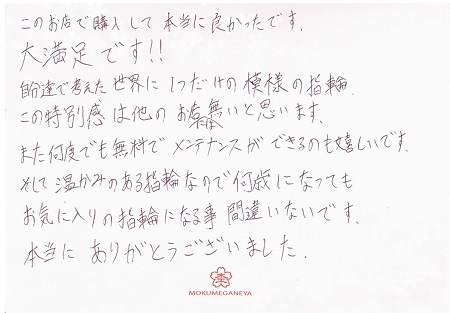 このお店で購入して本当に良かったです.
大満足です!!
自分達で考えた世界に1つだけの模様の指輪.
この特別感は他のお店には無いと思います.
また何度でも無料でメンテナンスができるのも嬉しいです.
そして温かみのある指輪なので何歳になっても
お気に入りの指輪になる事間違いないです.
本当にありがとうございました.
MOKUMEGANEYA